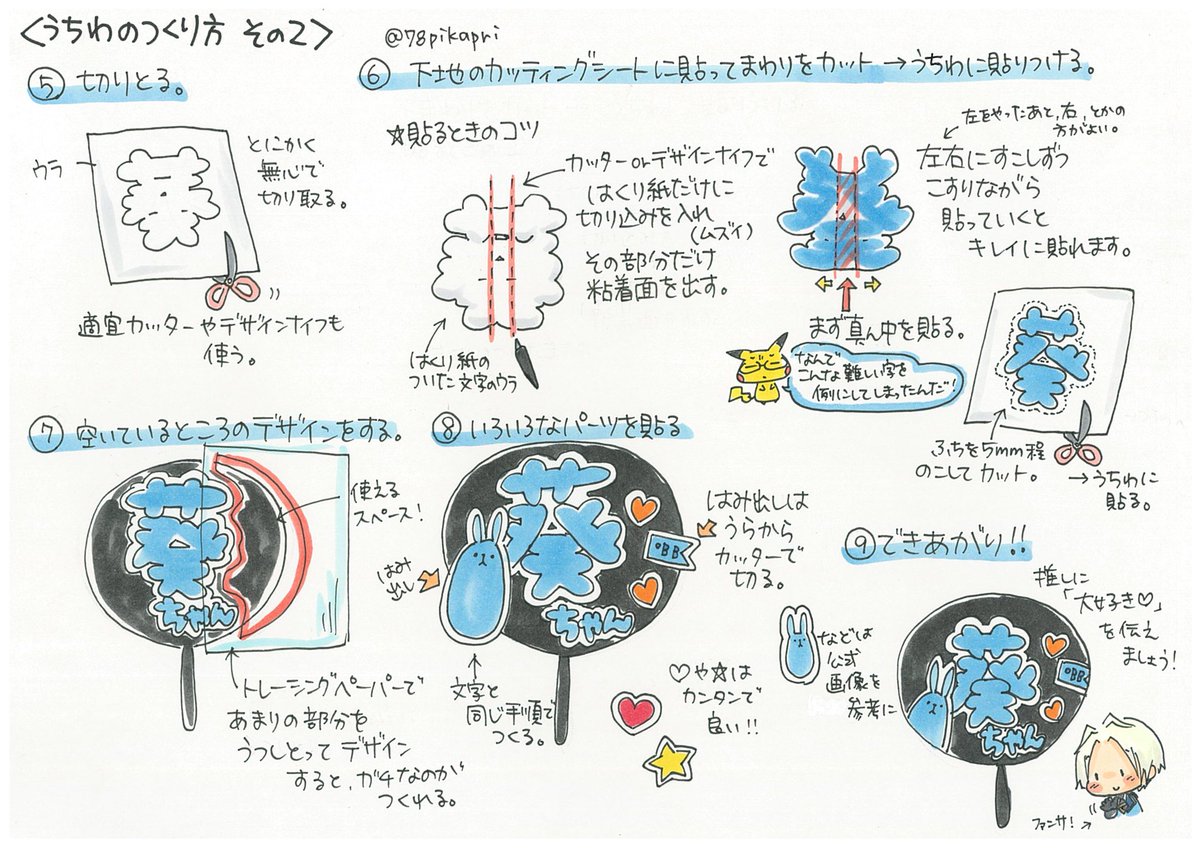 <うちわのつくり方 その2>
@78pikapri
⑤ 切りとる。
ウラ
とにかく
無心で
切り取る。
適宜カッターやデザインナイフも
使う。
⑥ 下地のカッティングシートに貼ってまわりをカット→うちわに貼りつける。
☆貼るときのコツ
カッターorデザインナイフで
はくり紙だけに
切り込みを入れ
(ムズイ)
その部分だけ
粘着面を出す。
はくり紙の
ついた文字のウラ
左をやったあと,右,とかの
方がよい。
左右にすこしずつ
こすりながら
貼っていくと
キレイに貼れます。
まず真ん中を貼る。
なんで
こんな難しい字を
例にしてしまったんだ!
葵
ふちを5mm程
のこしてカット。
→うちわに
貼る。
⑦ 空いているところのデザインをする。
葵
ちゃん
使える
スペース!
トレーシングペーパーで
あまりの部分を
うつしとってデザイン
すると,ガチなのが
つくれる。
⑧ いろいろなパーツを貼る
葵
ちゃん
BB
はみ
出し
はみ出しは
うらから
カッターで
切る。
文字と
同じ手順で
つくる。
♡や☆は
カンタンで
良い!!
などは
公式
画像を
参考に
⑨ できあがり!!
葵
ちゃん
BB
推しに
「大好き♡」
を伝え
ましょう!
ファンサ!